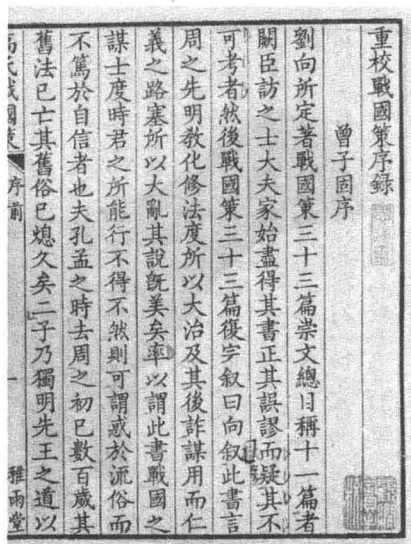 重校戰國策序錄
曾子固序
劉向所定著戰國策三十三篇崇文總目稱十一篇者
闕臣訪之士大夫家始盡得其書正其誤謬而疑其不
可考者然後戰國策三十三篇復完叙曰向叙此書言
周之先明敎化修法度所以大治及其後詐謀用而仁
義之路塞所以大亂其說旣美矣率以謂此書戰國之
謀士度時君之所能行不得不然則可謂惑於流俗而
不篤於自信者也夫孔孟之時去周之初已數百歲其
舊法已亡其舊俗已熄久矣二子乃獨明先王之道以
高氏戰國策 序前 一 雅雨堂